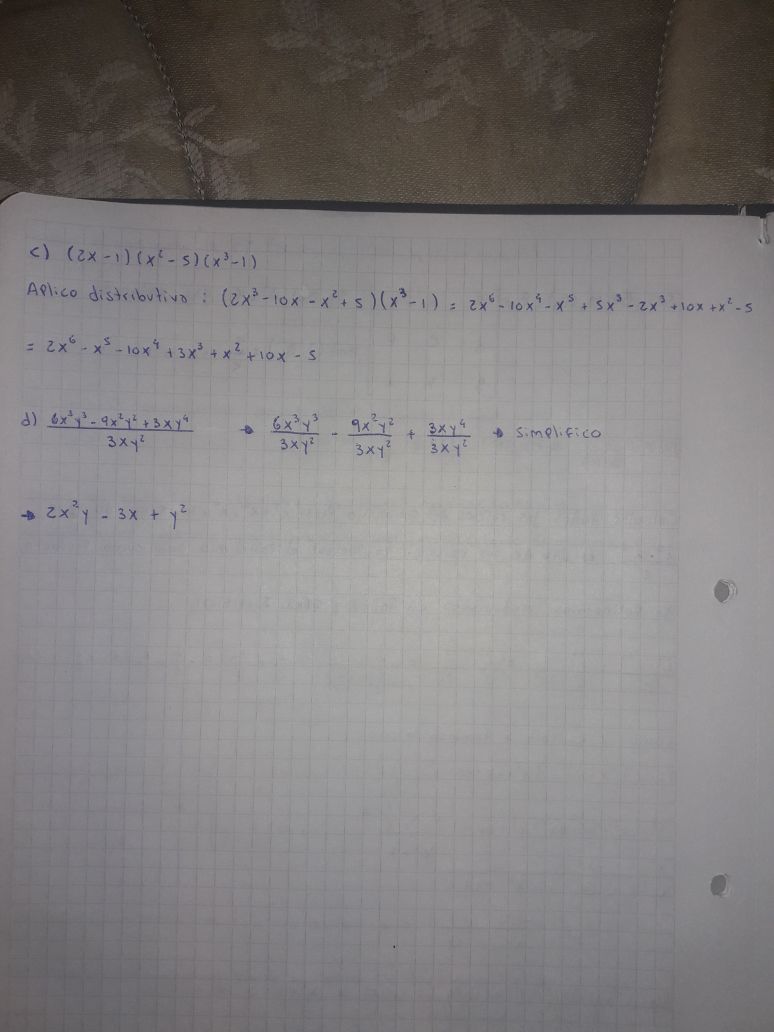 c) (2x-1)(x²-5)(x³-1)
Aplico distributiva : (2x³-10x-x²+5)(x³-1) = 2x⁶-10x⁴-x⁵+5x³-2x³+10x+x²-5
= 2x⁶-x⁵-10x⁴+3x³+x²+10x-5
d) (6x³y³-9x²y²+3xy⁴)/(3xy²) → 6x³y³/3xy² - 9x²y²/3xy² + 3xy⁴/3xy² → simplifico
→ 2x²y - 3x + y²